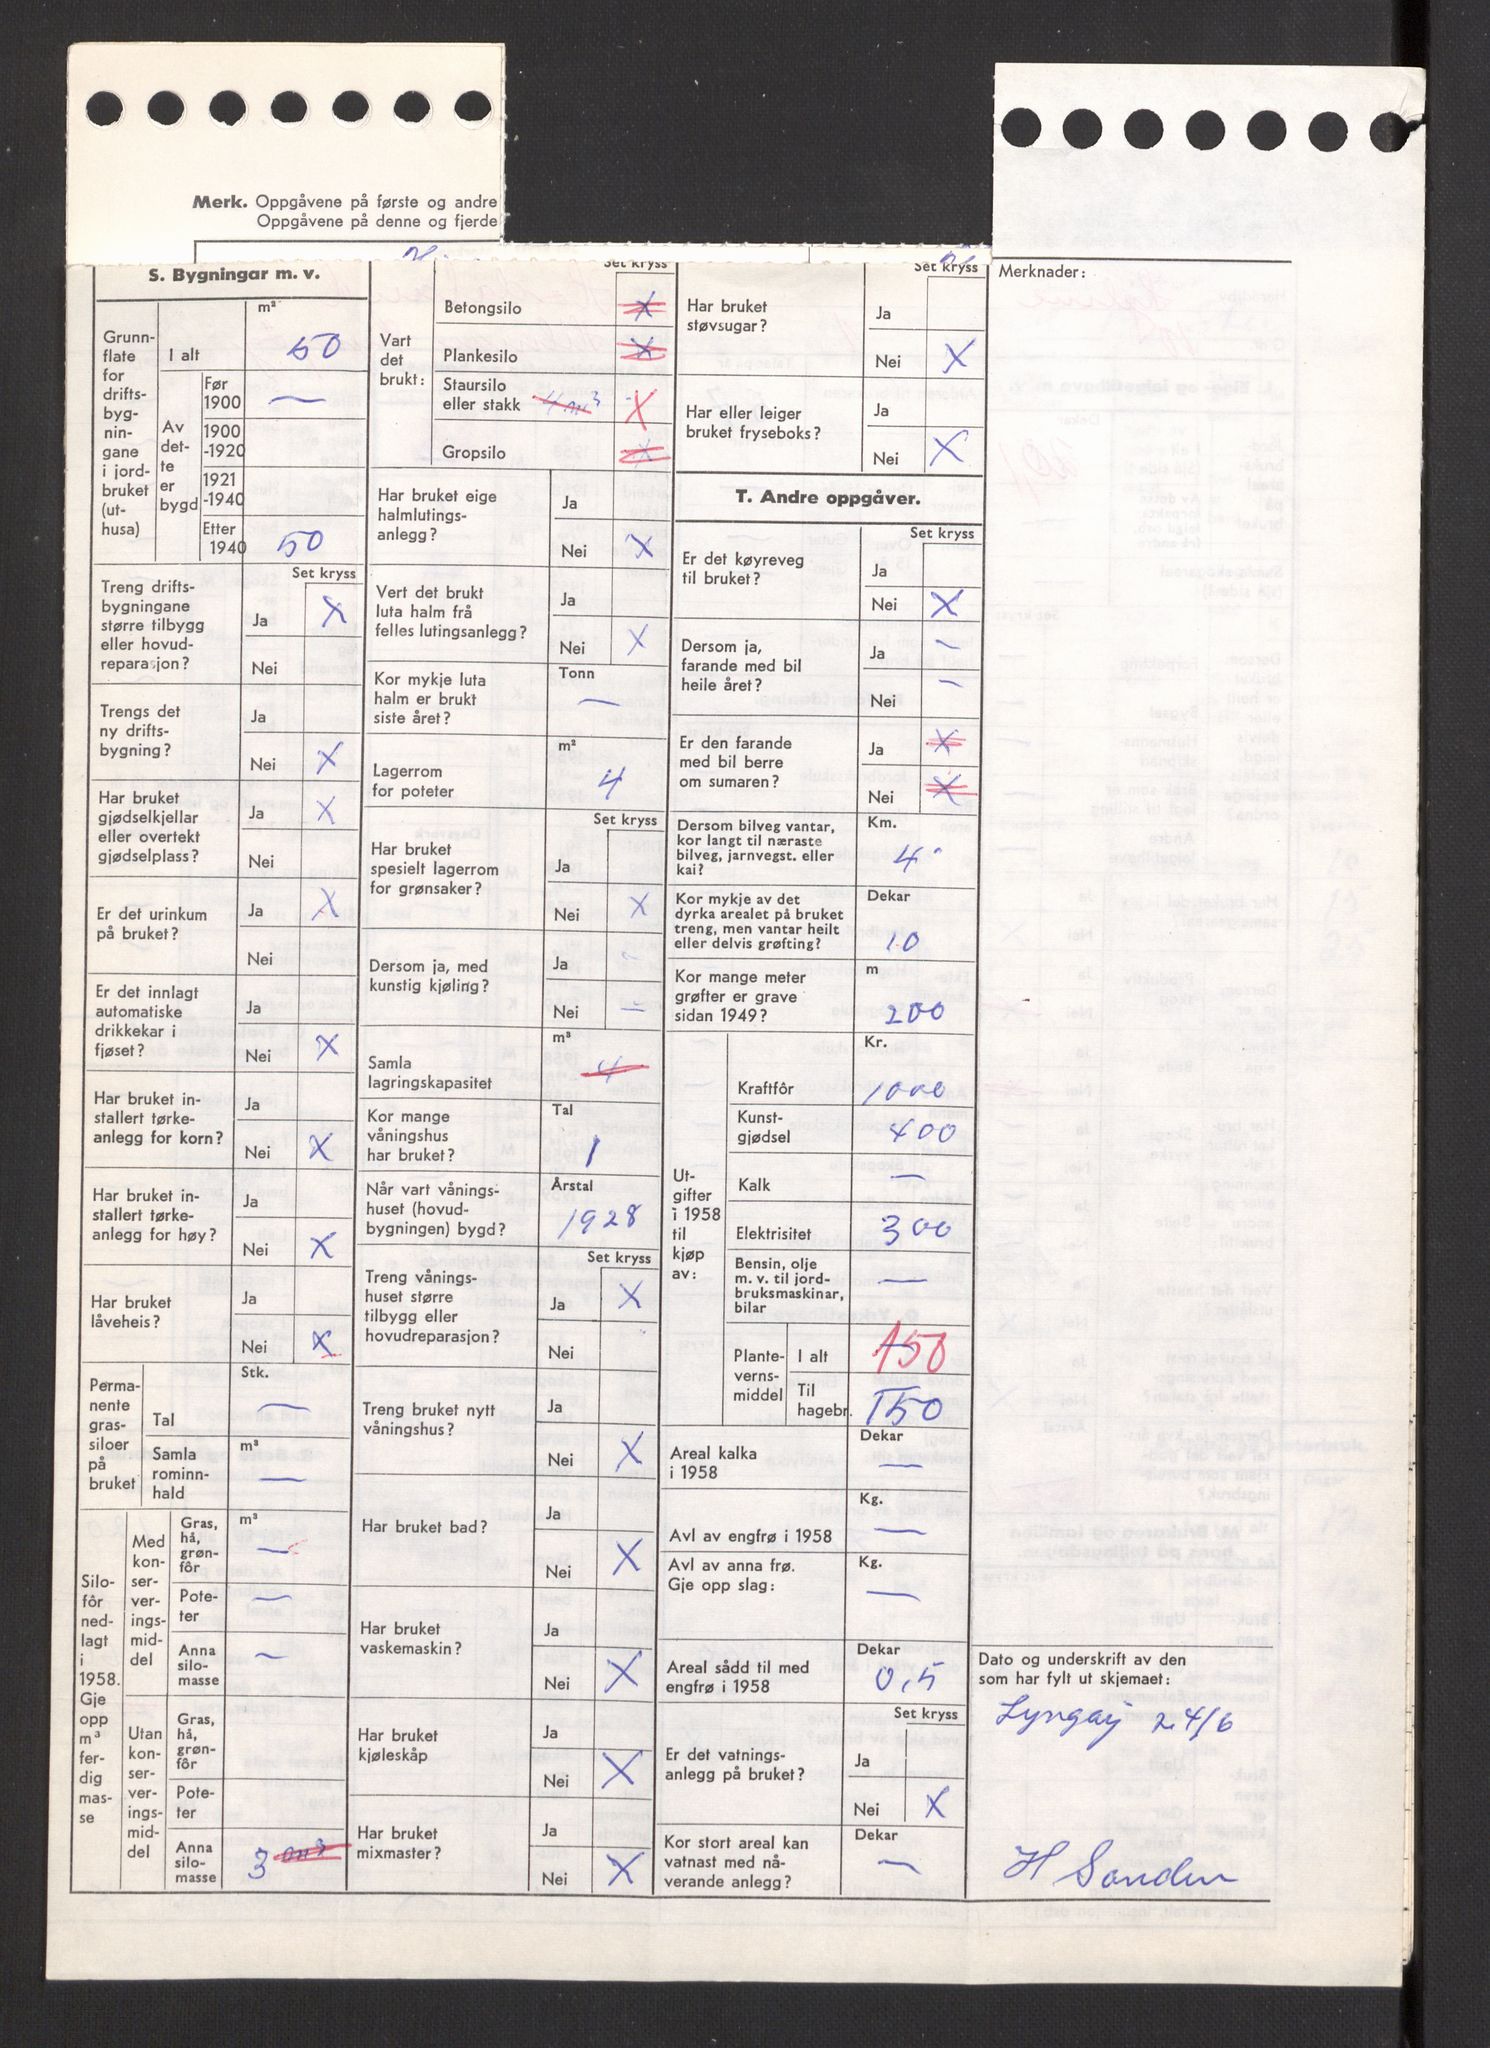 Merk. Oppgåvene på første og andre
Oppgåvene på denne og fjerde
S. Bygningar m. v.
m²
Grunn-
flate
for
drifts-
byg-
nin-
gane
i jord-
bruket
(ut-
husa)
I alt 50
Av
det-
te
er
bygd
Før
1900 —
1900
-1920
1921
-1940
Etter
1940 50
Set kryss
Treng drifts-
bygningane
større tilbygg
eller hovud-
reparasjon?
Ja X
Nei
Trengs det
ny drifts-
bygning?
Ja
Nei X
Har bruket
gjødselkjellar
eller overtekt
gjødselplass?
Ja X
Nei
Er det urinkum
på bruket?
Ja X
Nei
Er det innlagt
automatiske
drikkekar i
fjøset?
Ja
Nei X
Har bruket in-
stallert tørke-
anlegg for korn?
Ja
Nei X
Har bruket in-
stallert tørke-
anlegg for høy?
Ja
Nei X
Har bruket
låveheis?
Ja
Nei X
Perma-
nente
gras-
siloer
på
bruket
Stk.
Tal —
m³
Samla
rominn-
hald —
Silo-
fôr
ned-
lagt
i
1958.
Gje
opp
m³
fer-
dig
mas-
se
Med
kon-
ser-
ver-
ings-
mid-
del
m³
Gras,
hå,
grøn-
fôr —
Pote-
ter —
Anna
silo-
masse —
Utan
kon-
ser-
ver-
ings-
mid-
del
Gras,
hå,
grøn-
fôr
Pote-
ter
Anna
silo-
masse 3 m³
Set kryss
Vart
det
brukt:
Betongsilo X
Plankesilo X
Staursilo
eller stakk 4 m³ X
Gropsilo X
Har bruket eige
halmlutings-
anlegg?
Ja
Nei X
Vert det brukt
luta halm frå
felles lutingsanlegg?
Ja
Nei X
Kor mykje luta
halm er brukt
siste året?
Tonn
—
Lagerrom
for poteter
m²
4
Set kryss
Har bruket
spesielt lagerrom
for grønsaker?
Ja
Nei X
Dersom ja, med
kunstig kjøling?
Ja -
Nei —
Samla
lagringskapasitet
m³
4
Kor mange
våningshus
har bruket?
Tal
1
Når vart vånings-
huset (hovud-
bygningen) bygd?
Årstal
1928
Set kryss
Treng vånings-
huset større
tilbygg eller
hovudreparasjon?
Ja X
Nei
Treng bruket nytt
våningshus?
Ja
Nei X
Har bruket bad?
Ja
Nei X
Har bruket
vaskemaskin?
Ja
Nei X
Har bruket
kjøleskåp
Ja
Nei X
Har bruket
mixmaster?
Ja
Nei X
Set kryss
Har bruket
støvsugar?
Ja
Nei X
Har eller leiger
bruket fryseboks?
Ja
Nei X
T. Andre oppgåver.
Set kryss
Er det køyreveg
til bruket?
Ja
Nei X
Dersom ja,
farande med bil
heile året?
Ja —
Nei —
Er den farande
med bil berre
om sumaren?
Ja X
Nei X
Dersom bilveg vantar,
kor langt til næraste
bilveg, jarnvegst. eller
kai?
Km.
4
Kor mykje av det
dyrka arealet på bruket
treng, men vantar heilt
eller delvis grøfting?
Dekar
10
Kor mange meter
grøfter er grave
sidan 1949?
m
200
Ut-
gifter
i 1958
til
kjøp
av:
Kr.
Kraftfôr 1000
Kunst-
gjødsel 400
Kalk —
Elektrisitet 300
Bensin, olje
m. v. til jord-
bruksmaskinar,
bilar —
Plante-
verns-
middel
I alt 150
Til
hagebr. 150
Areal kalka
i 1958
Dekar
—
Avl av engfrø i 1958
Kg.
—
Avl av anna frø.
Gje opp slag:
Kg.
—
Areal sådd til med
engfrø i 1958
Dekar
0,5
Set kryss
Er det vatnings-
anlegg på bruket?
Ja
Nei X
Kor stort areal kan
vatnast med nå-
verande anlegg?
Dekar
—
Merknader:
Dato og underskrift av den
som har fylt ut skjemaet:
24/6
H Sanden